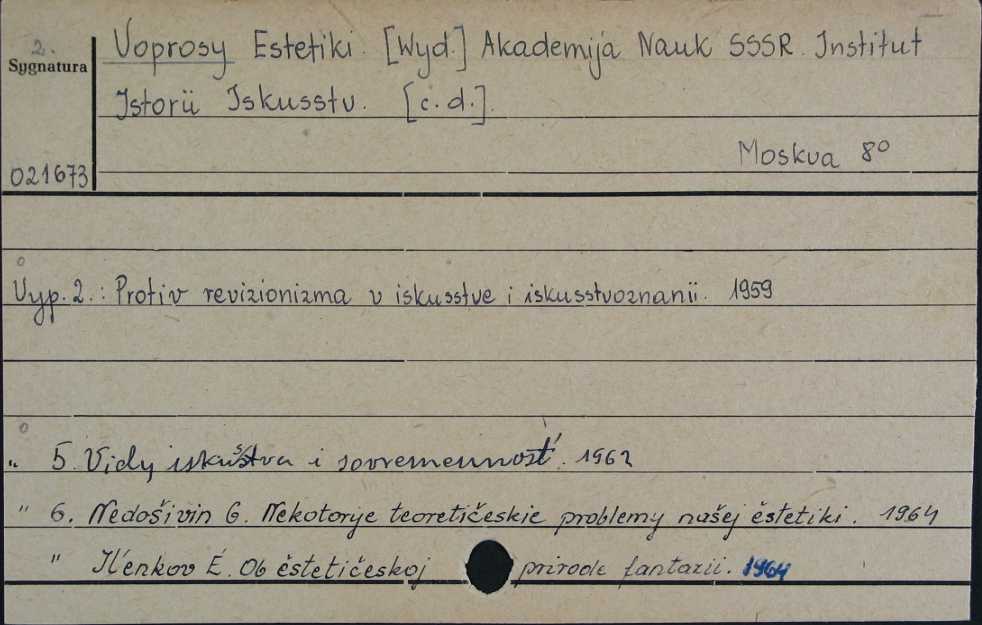 2.
Voprosy Estetiki. [Wyd.] Akademija Nauk SSSR. Institut
Sygnatura
Istorii Iskusstv. [c.d.].
Moskva 8°
021673
Vyp. 2.: Protiv revizionizma v iskusstve i iskusstvoznanii. 1959
„ 5. Vidy iskusstva i sovremennost'. 1962
" 6. Nedošivin G. Nekotorye teoretičeskie problemy našej èstetiki. 1964
" Il'enkov È. Ob èstetičeskoj prirode fantazii. 1964